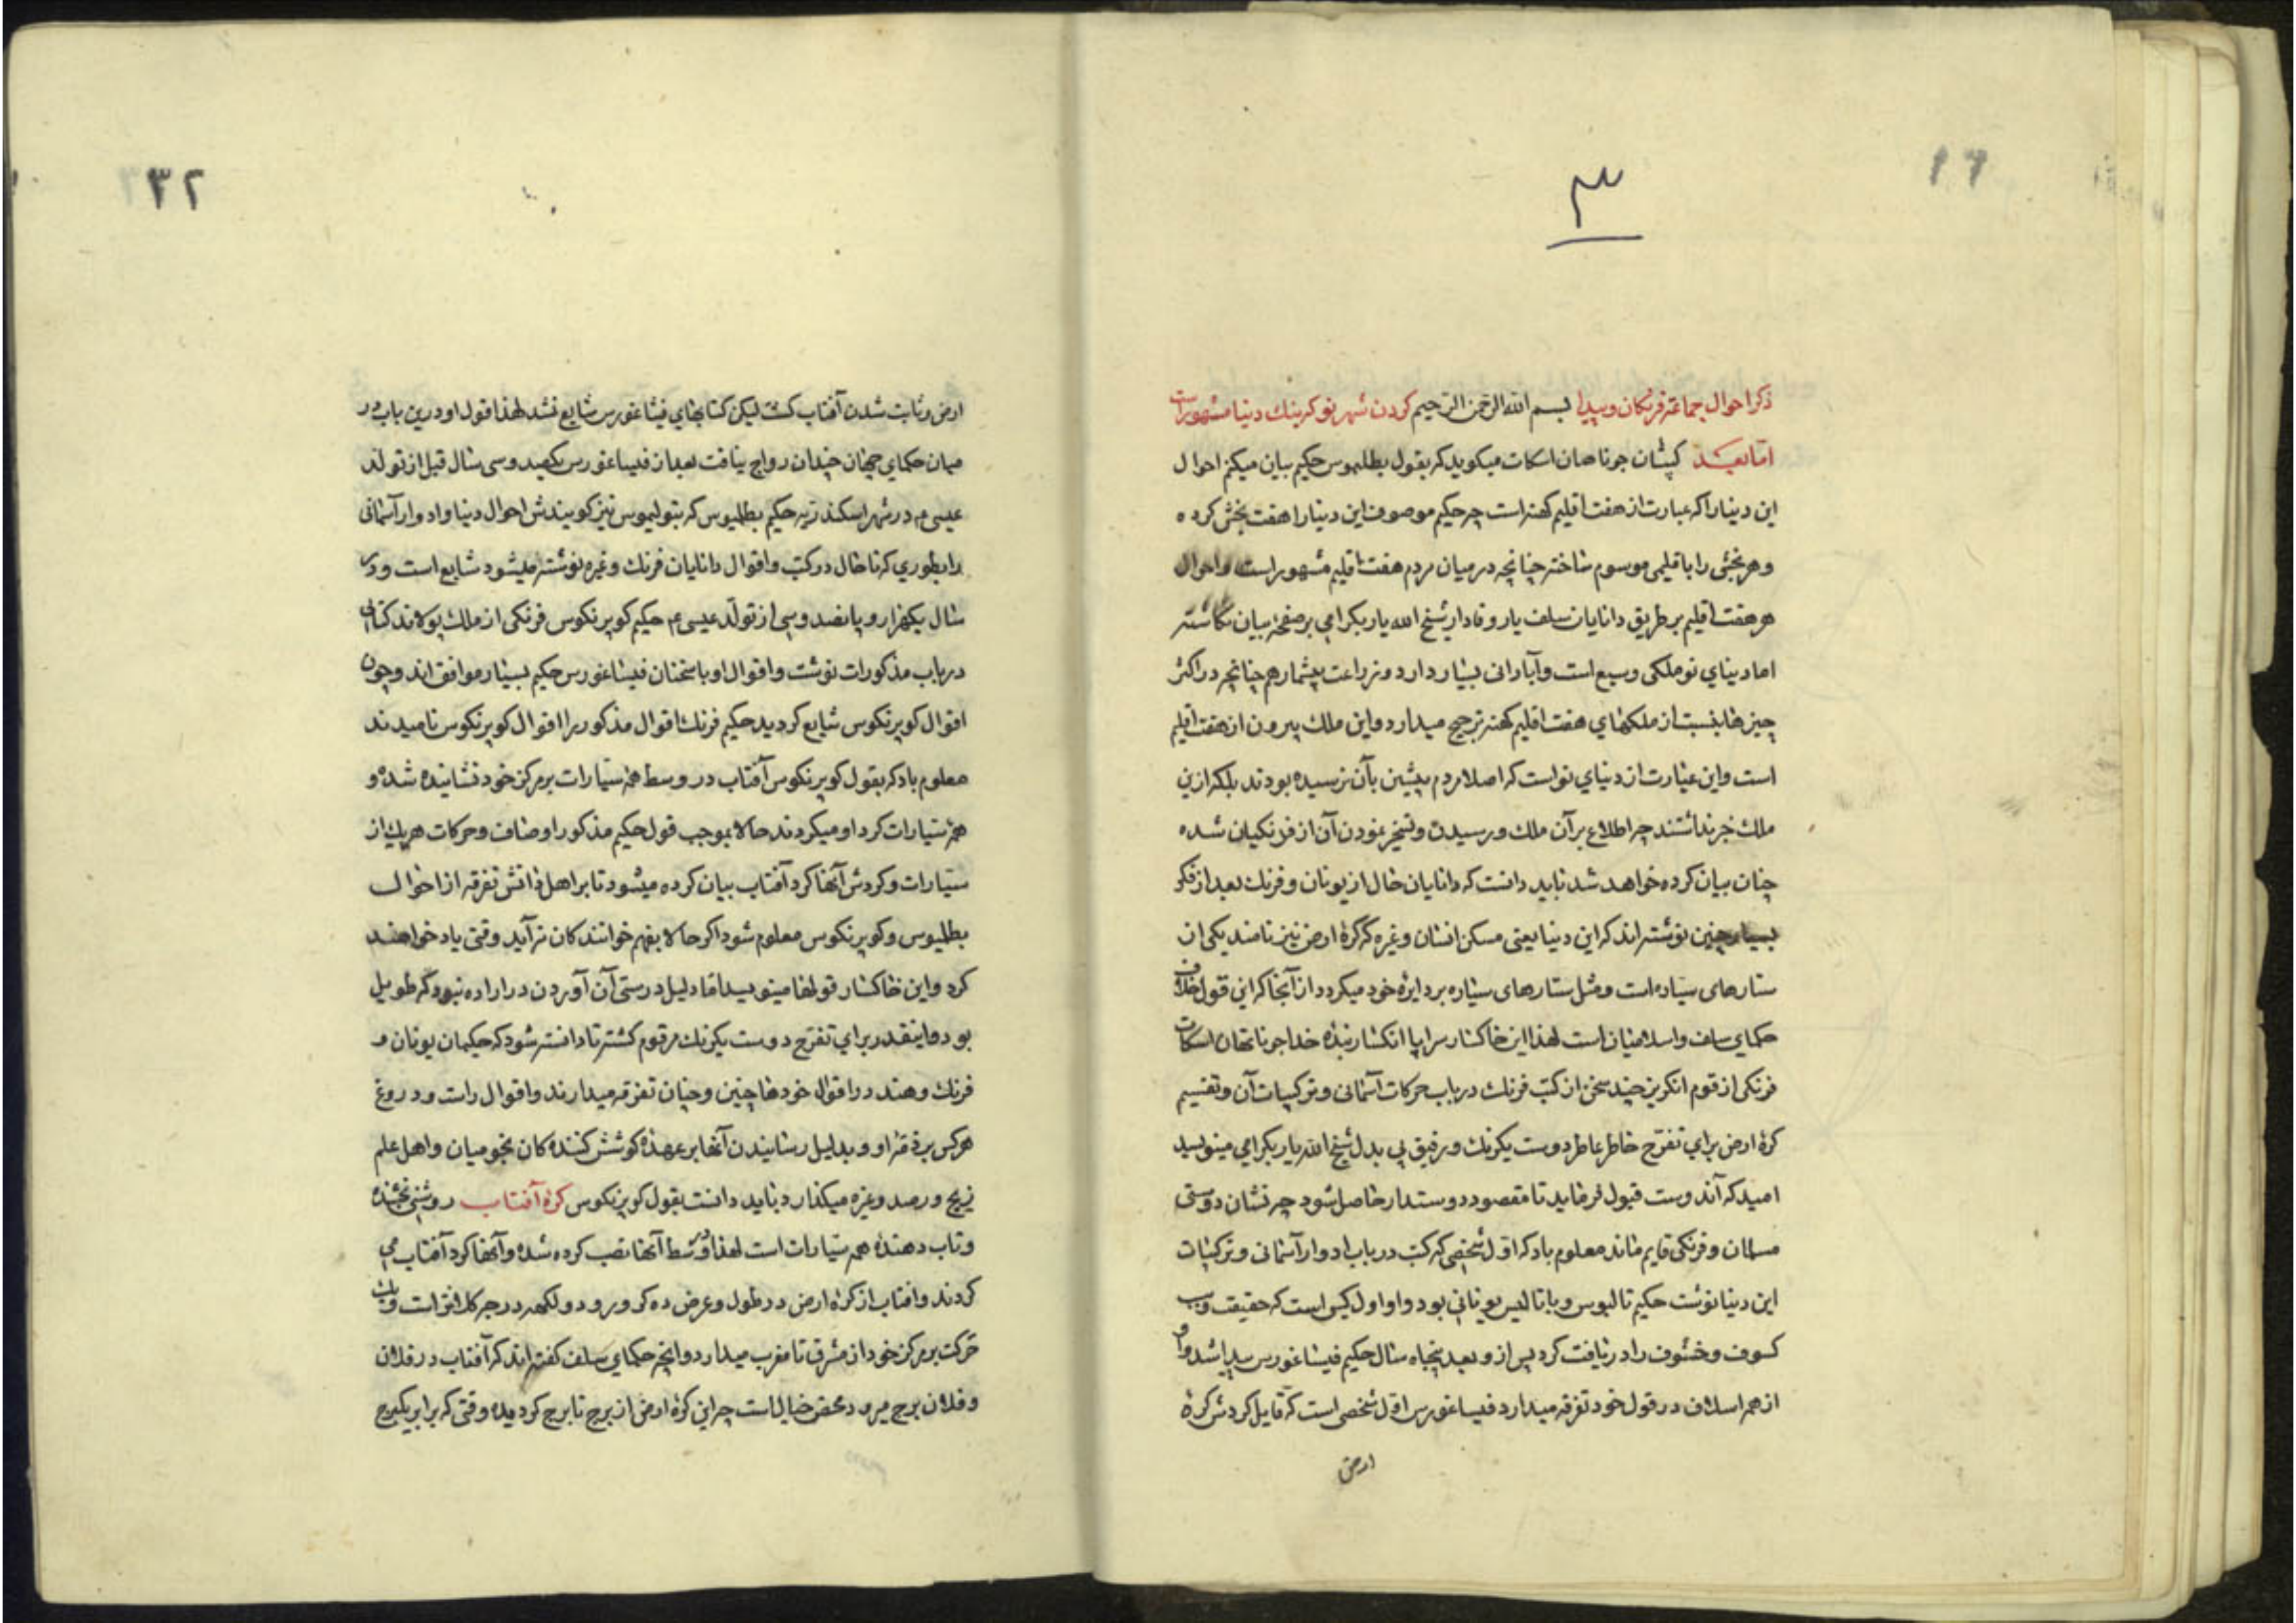 ۳
ذکر احوال جماعتۀ فرنکان و پیدا بسم الله الرحمن الرحیم کردن شهر نو کرینك دنیا مشهوراست
اما بعد کپتان جوناهان اسکات میکوید که بقول بطلیموس حکیم بیان میکنم احوال
این دنیا را که عبارت از هفت اقلیم کهنه است چه حکیم موصوف این دنیا را هفت بخش کرده
و هر بخشی را باقلیمی موسوم ساخته چنانچه در میان مردم هفت اقلیم مشهور است و احوال
هر هفت اقلیم بر طریق دانایان سلف یار وفادار شیخ الله یار بکرامی بر صفحه بیان نکاشته
اما دنیای نو ملکی وسیع است و آبادانی بسیار دارد و زراعت بیشمار هم چنانچه در اکثر
چیزها بنسبت از ملکهای هفت اقلیم کهنه ترجیح میدارد و این ملك بیرون از هفت اقلیم
است و این عبارت از دنیای نو است که اصلا مردم پیشین بآن نرسیده بودند بلکه ازین
ملك خبر نداشتند چه اطلاع بر آن ملك و رسیدن و تسخیر نمودن آن از فرنکیان شده
چنان بیان کرده خواهد شد باید دانست که دانایان حال از یونان و فرنك بعد از فکر
بسیار چنین نوشته اند که این دنیا یعنی مسکن انسان و غیره که کرۀ ارض نیز نامند یکی از
ستارهای سیاره است و مثل ستارهای سیاره بر دایرۀ خود میکردد از آنجا که این قول خلاف
حکمای سلف و اسلامیان است لهذا این خاکسار سراپا انکسار بندۀ خدا جوناتهان اسکات
فرنکی از قوم انکریز چند سخن از کتب فرنك در باب حرکات آسمانی و ترکیبات آن و تقسیم
کرۀ ارض برای تفرّج خاطر عاطر دوست یکرنك و رفیق بی بدل شیخ الله یار بکرامی مینویسد
امید که آندوست قبول فرماید تا مقصود دوستدار حاصل شود چه نشان دوستی
مسلمان و فرنکی قایم ماند معلوم باد که اول شخصی که کتب در باب ادوار آسمانی و ترکیبات
این دنیا نوشت حکیم تالیوس و یا تالیس یونانی بود و او اول کسی است که حقیقت
کسوف و خسوف را دریافت کرد پس از و بعد پنجاه سال حکیم فیساغورس پیدا شد و او
از همه اسلاف در قول خود تفرقه میدارد فیساغورس اول شخصی است که قایل کردش کرۀ
ارض
۳۲
ارض و ثابت شدن آفتاب کشت لیکن کتابهای فیثاغورس شایع نشد لهذا قول او درین باب در
میان حکمای جهان چندان رواج نیافت بعد از فیساغورس یکصد و سی سال قبل از تولد
عیسی م در شهر اسکندریه حکیم بطلمیوس که بتولیموس نیز کویندش احوال دنیا و ادوار آسمانی
را بطوری که تا حال در کتب و اقوال دانایان فرنك و غیره نوشته میشود شایع است و در
سال یکهزار و پانصد و سی از تولد عیسی م حکیم کوپرنکوس فرنکی از ملك پولاند کتابی
در باب مذکورات نوشت و اقوال او با سخنان فیساغورس حکیم بسیار موافق اند و چون
اقوال کوپرنکوس شایع کردید حکیم فرنك اقوال مذکور را اقوال کوپرنکوس نامیدند
معلوم باد که بقول کوپرنکوس آفتاب در وسط همۀ سیارات بر مرکز خود نشانیده شده و
همۀ سیارات کرد او میکردند حالا بموجب قول حکیم مذکور اوصاف و حرکات هریك از
سیارات و کردش آنها کرد آفتاب بیان کرده میشود تا بر اهل دانش تفرقه از احوال
بطلمیوس و کوپرنکوس معلوم شود اکر حالا بفهم خوانندکان نر آید وقتی یاد خواهند
کرد و این خاکسار قولها مینویسد اما دلیل درستی آن آوردن در اراده نبود که طویل
بود و اینقدر برای تفرّج دوست یکرنك مرقوم کشته تا دانسته شود که حکیمان یونان و
فرنك و هند در اقوال خودها چنین و چنان تفرقه میدارند و اقوال راست و دروغ
هرکس بر ذمۀ او و بدلیل رسانیدن آنها بر عهدۀ کوشش کنندکان نجومیان و اهل علم
زیج و رصد و غیره میکذارد باید دانست بقول کوپرنکوس کرۀ آفتاب روشنی بخشنده
و تاب دهندۀ همه سیارات است لهذا در وسط آنها نصب کرده شده و آنها کرد آفتاب می
کردند و افتاب از کرۀ ارض در طول و عرض ده کرور و دو لکهه درجه کلانتر است و یك
حرکت بر مرکز خود از مشرق تا مغرب میدارد و انچه حکمای سلف کفته اند که آفتاب در فلان
و فلان برج میرود محض خیال است چه این کرۀ ارض از برج تا برج کردیده وقتی که برابر یکبرج